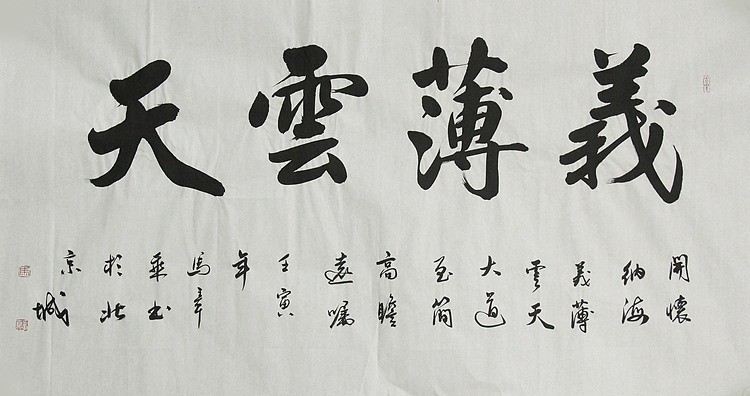 義薄雲天
開懷
納海
義薄
雲天
大道
至簡
高瞻
遠矚
壬寅
年
馬章
乘书
於北
京城